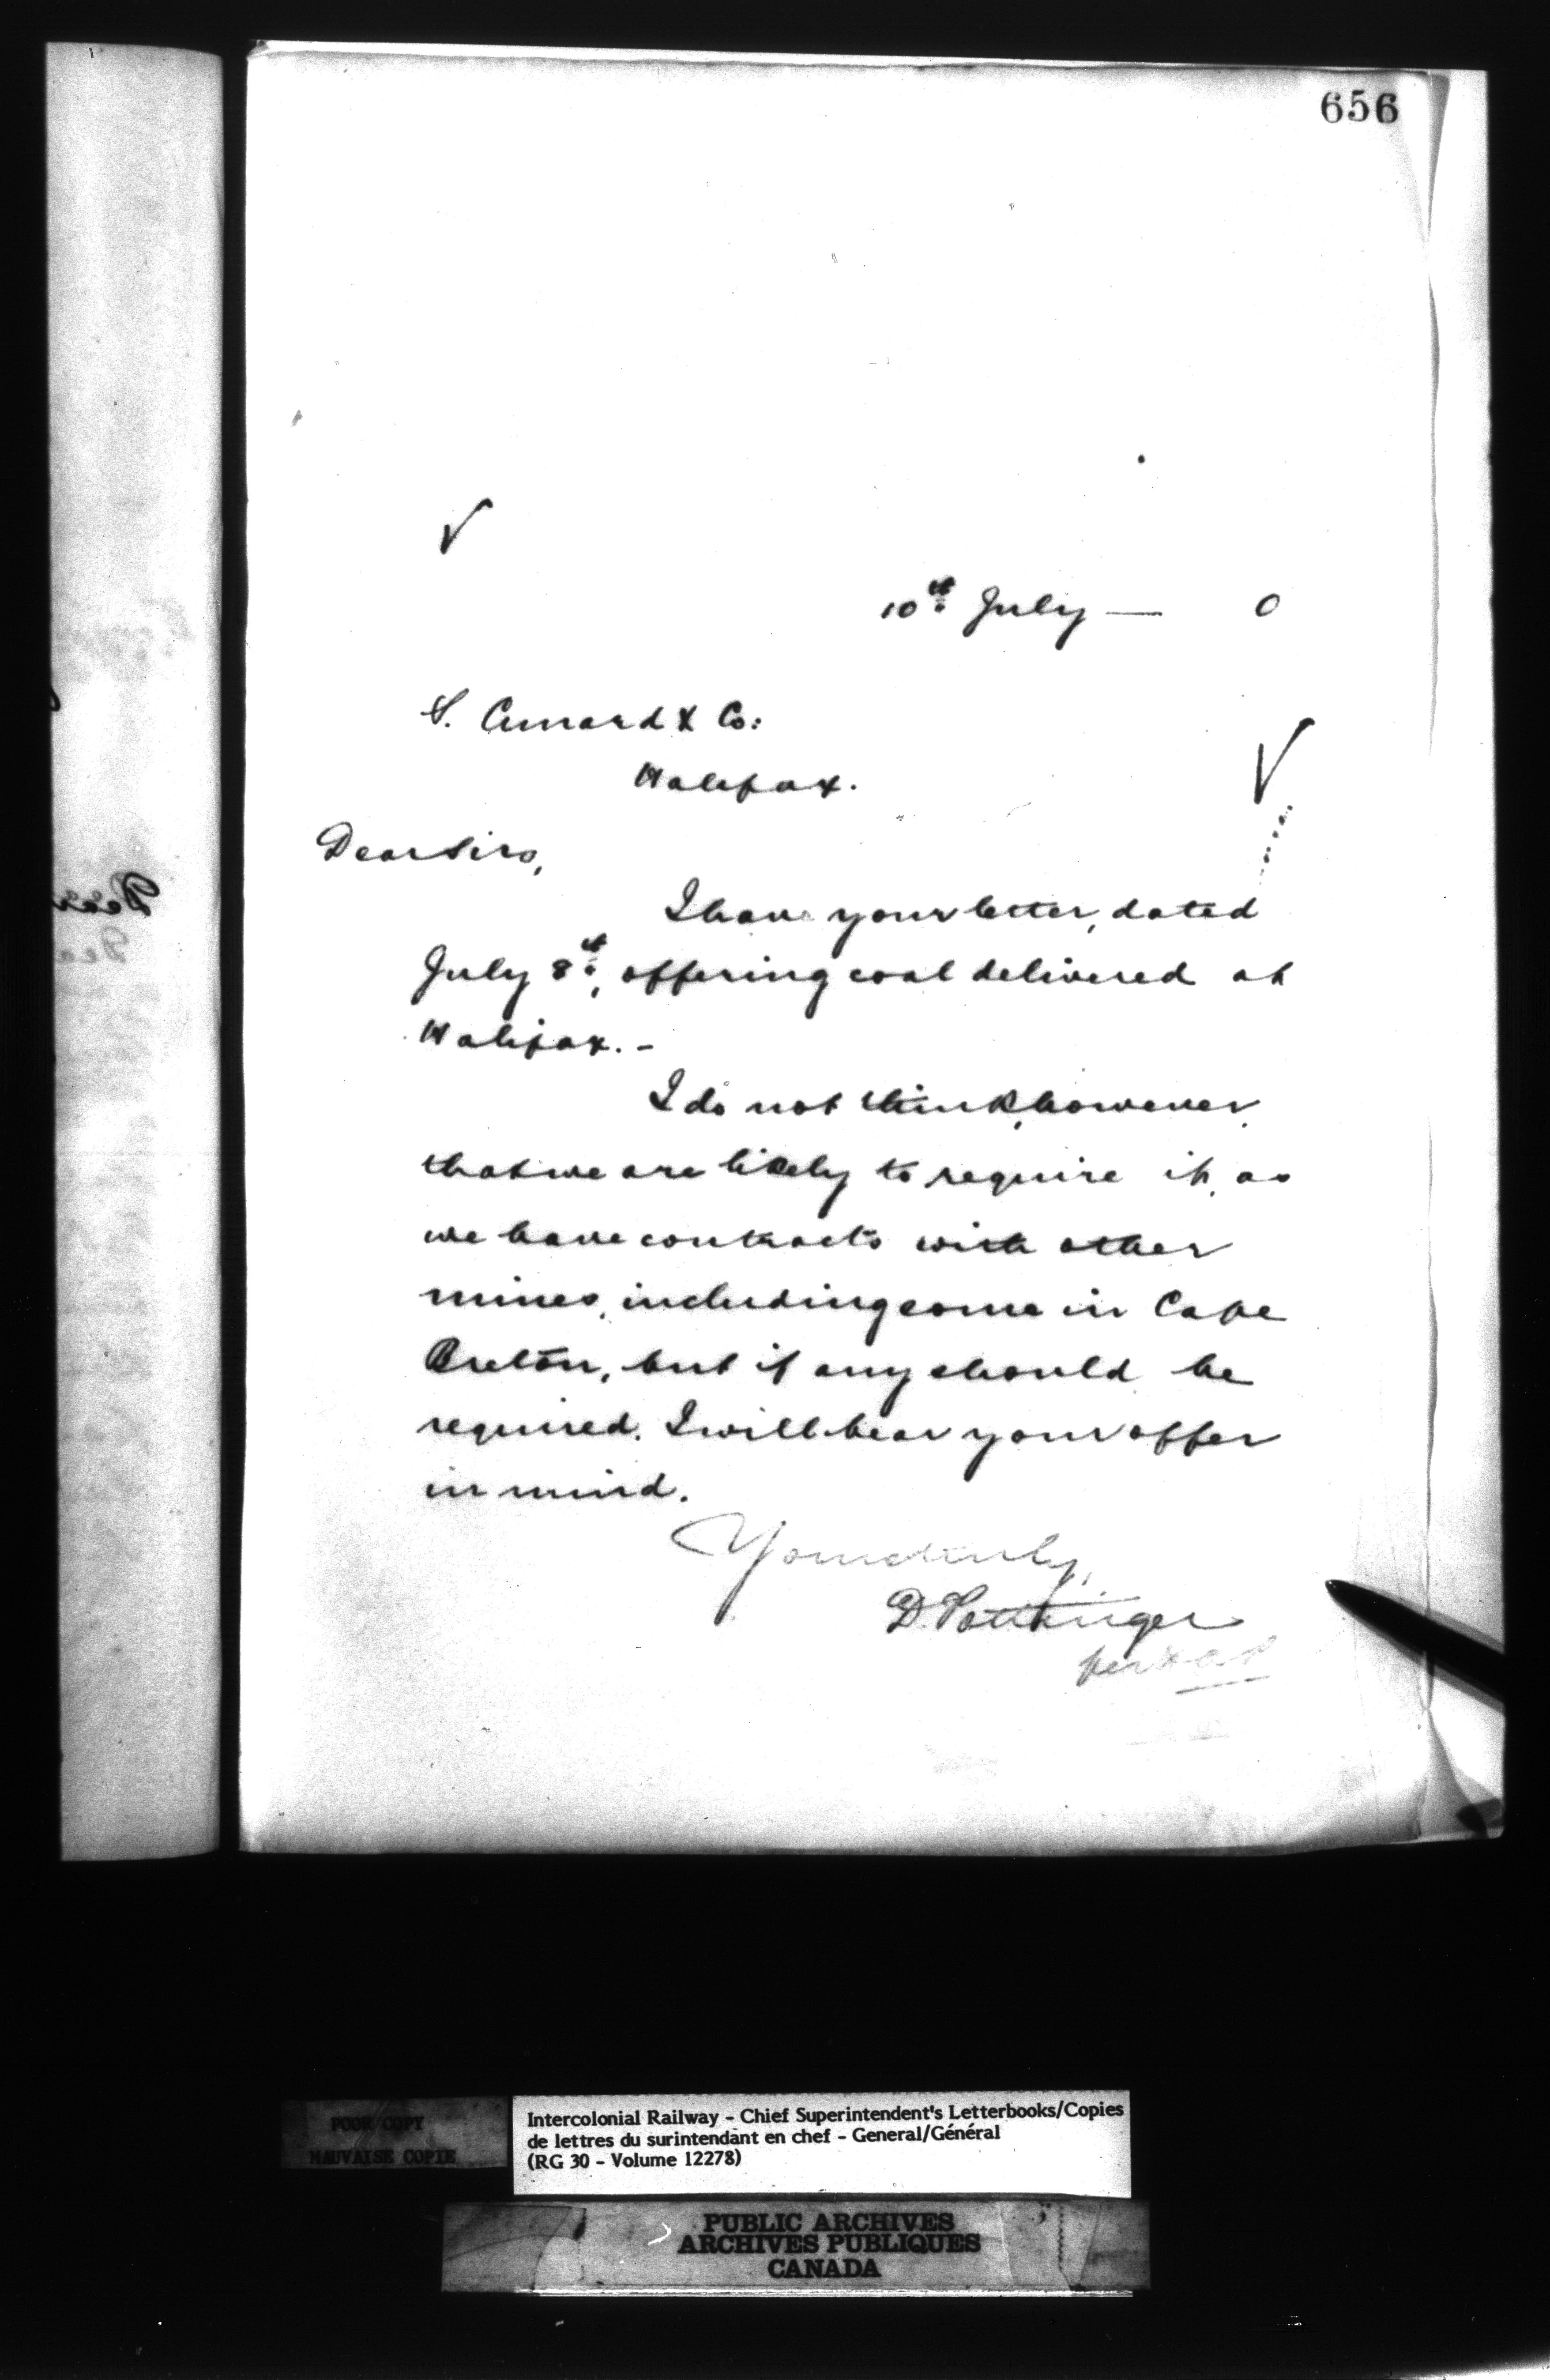 656
10th July — 0
S. Cunard & Co:
Halifax.
Dear Sirs,
I have your letter, dated
July 8th, offering coal delivered at
Halifax. -
I do not think, however,
that we are likely to require it, as
we have contracts with other
mines, including some in Cape
Breton, but if any should be
required, I will bear your offer
in mind.
Yours truly,
D. Pottinger
per
POOR COPY
MAUVAISE COPIE
Intercolonial Railway - Chief Superintendent's Letterbooks/Copies
de lettres du surintendant en chef - General/Général
(RG 30 - Volume 12278)
PUBLIC ARCHIVES
ARCHIVES PUBLIQUES
CANADA